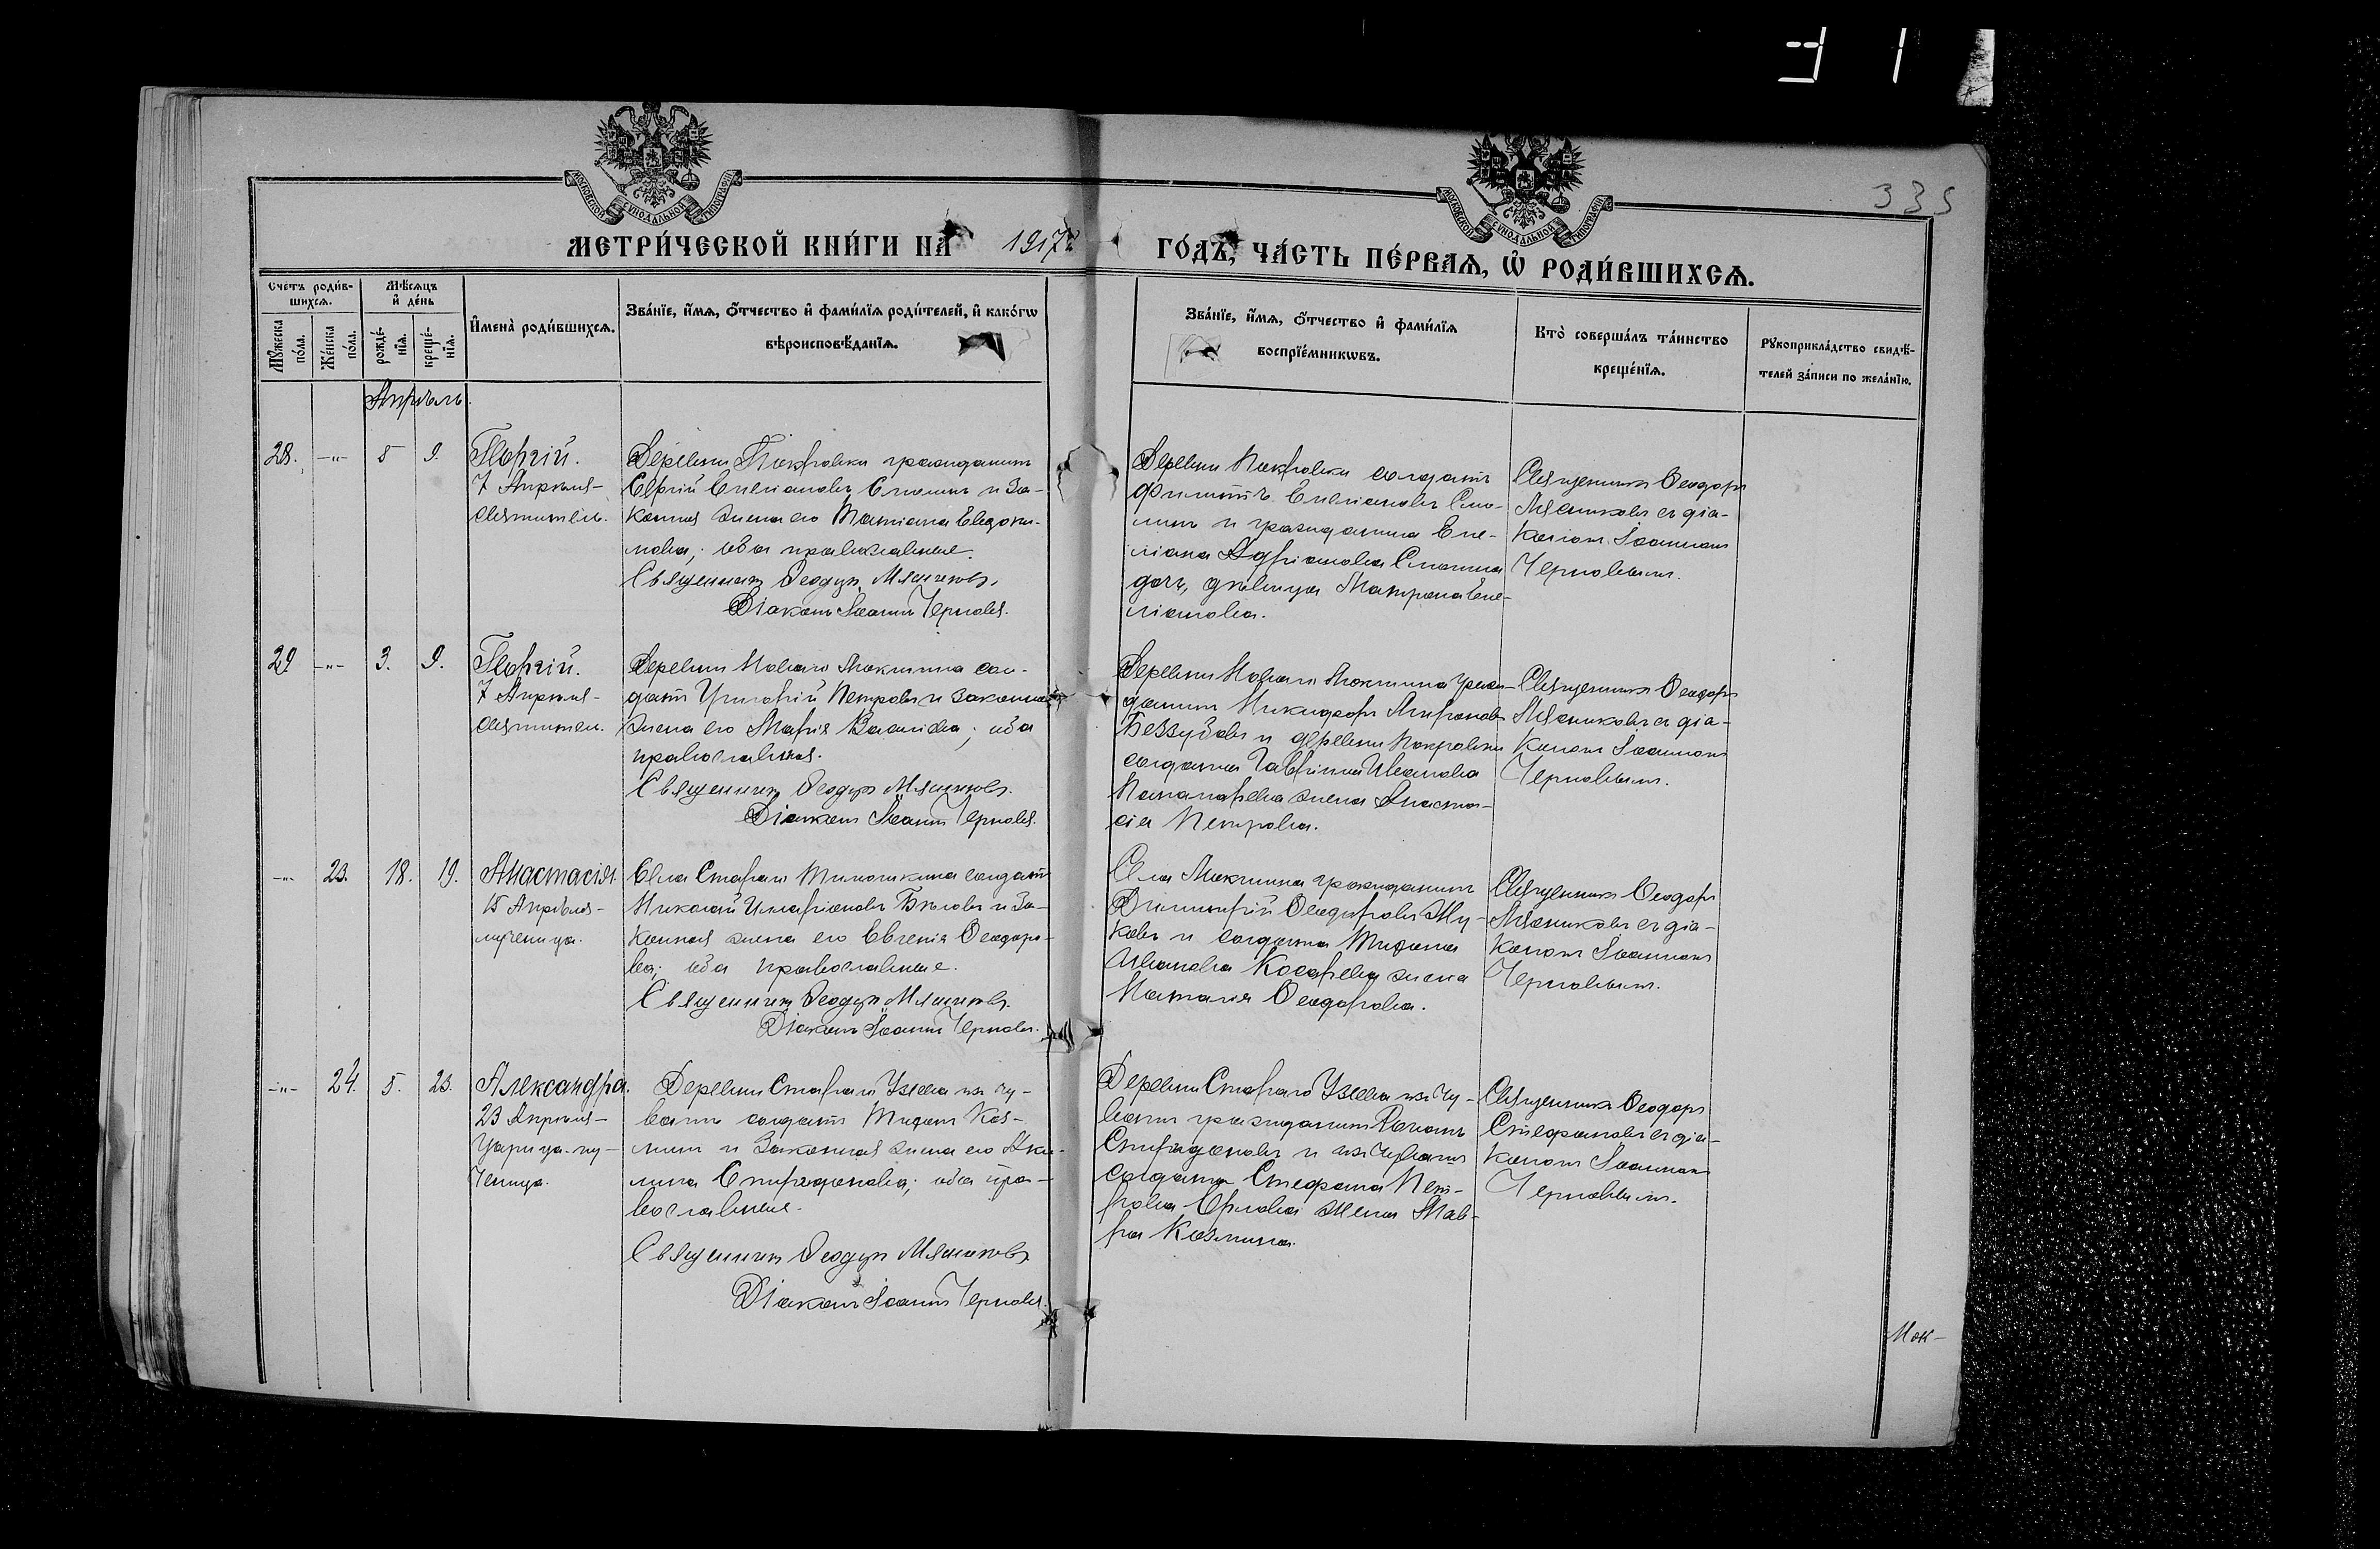 335
МОСКОВСКОЙ СѴНОДАЛЬНОЙ ТИПОГРАФІИ
МОСКОВСКОЙ СѴНОДАЛЬНОЙ ТИПОГРАФІИ
МЕТРИ́ЧЕСКОЙ КНИ́ГИ НА 1917й ГО́ДЪ, ЧА́СТЬ ПЕ́РВАѦ, Ѡ҆ РОДИ́ВШИХСѦ.
Сче́тъ роди́в-
шихсѧ.
Мꙋ́жеска
по́ла.
Же́нска
по́ла.
Мѣ́сѧцъ
и҆ де́нь
рожде́-
нїѧ.
креще́-
нїѧ.
И҆мена̀ роди́вшихсѧ.
Зва́нїе, и҆́мѧ, ѻ҆́тчество и҆ фами́лїѧ роди́телей, и҆ како́гѡ
вѣроисповѣ́данїѧ.
Зва́нїе, и҆́мѧ, ѻ҆́тчество и҆ фами́лїѧ
воспрїе́мникѡвъ.
Кто̀ соверша́лъ та́инство
креще́нїѧ.
Рꙋкоприкла́дство свидѣ́-
телей за́писи по жела́нїю.
Апрѣль.
28. -"- 8 9.
Георгій.
7 Апрѣля-
святитель.
Деревни Покровки гражданинъ
Сергій Емеліановъ Смолинъ и за-
конная жена его Татіана Евдоки-
мова; оба православные.
Священникъ Ѳеодоръ Мясниковъ.
Діаконъ Іоаннъ Черновъ.
Деревни Покровки солдатъ
Филиппъ Емеліановъ Смо-
линъ и гражданина Еме-
ліана Адріанова Смолина
дочь, дѣвица Матрона Еме-
ліанова.
Священникъ Ѳеодоръ
Мясниковъ съ діа-
кономъ Іоанномъ
Черновымъ.
29 -"- 3. 9.
Георгій.
7 Апрѣля-
святитель.
Деревни Новаго Мокшина сол-
датъ Григорій Петровъ и законная
жена его Марія Васильева; оба
православные.
Священникъ Ѳеодоръ Мясниковъ.
Діаконъ Іоаннъ Черновъ.
Деревни Новаго Мокшина граж-
данинъ Никифоръ
Беззубовъ и деревни Покровки
солдата Гавріила Иванова
Пономарева жена Анаста-
сія Петрова.
Священникъ Ѳеодоръ
Мясниковъ съ діа-
кономъ Іоанномъ
Черновымъ.
-"- 23. 18. 19.
Анастасія.
15 Апрѣля-
мученица.
Села Стараго солдатъ
Николай Иларіоновъ Бѣловъ и за-
конная жена его Евгенія Ѳеодоро-
ва; оба православные.
Священникъ Ѳеодоръ Мясниковъ.
Діаконъ Іоаннъ Черновъ.
Села Мокшина гражданинъ
Димитрій Ѳеодоровъ Жу-
ковъ и солдата Тихона
Иванова Косарева жена
Наталія Ѳеодорова.
Священникъ Ѳеодоръ
Мясниковъ съ діа-
кономъ Іоанномъ
Черновымъ.
-"- 24. 5. 23.
Александра.
23 Апрѣля-
Царица-му-
ченица.
Деревни Стараго Узеева изъ чу-
вашъ солдатъ Тихонъ Коз-
минъ и законная жена его Аки-
лина Спиридонова; оба пра-
вославные.
Священникъ Ѳеодоръ Мясниковъ.
Діаконъ Іоаннъ Черновъ.
Деревни Стараго Узеева изъ чу-
вашъ гражданинъ
Спиридоновъ и изъ чувашъ
солдата Стефана Пет-
рова Орлова жена Мав-
ра Козмина.
Священникъ Ѳеодоръ
Стефановъ съ діа-
кономъ Іоанномъ
Черновымъ.
Мок-